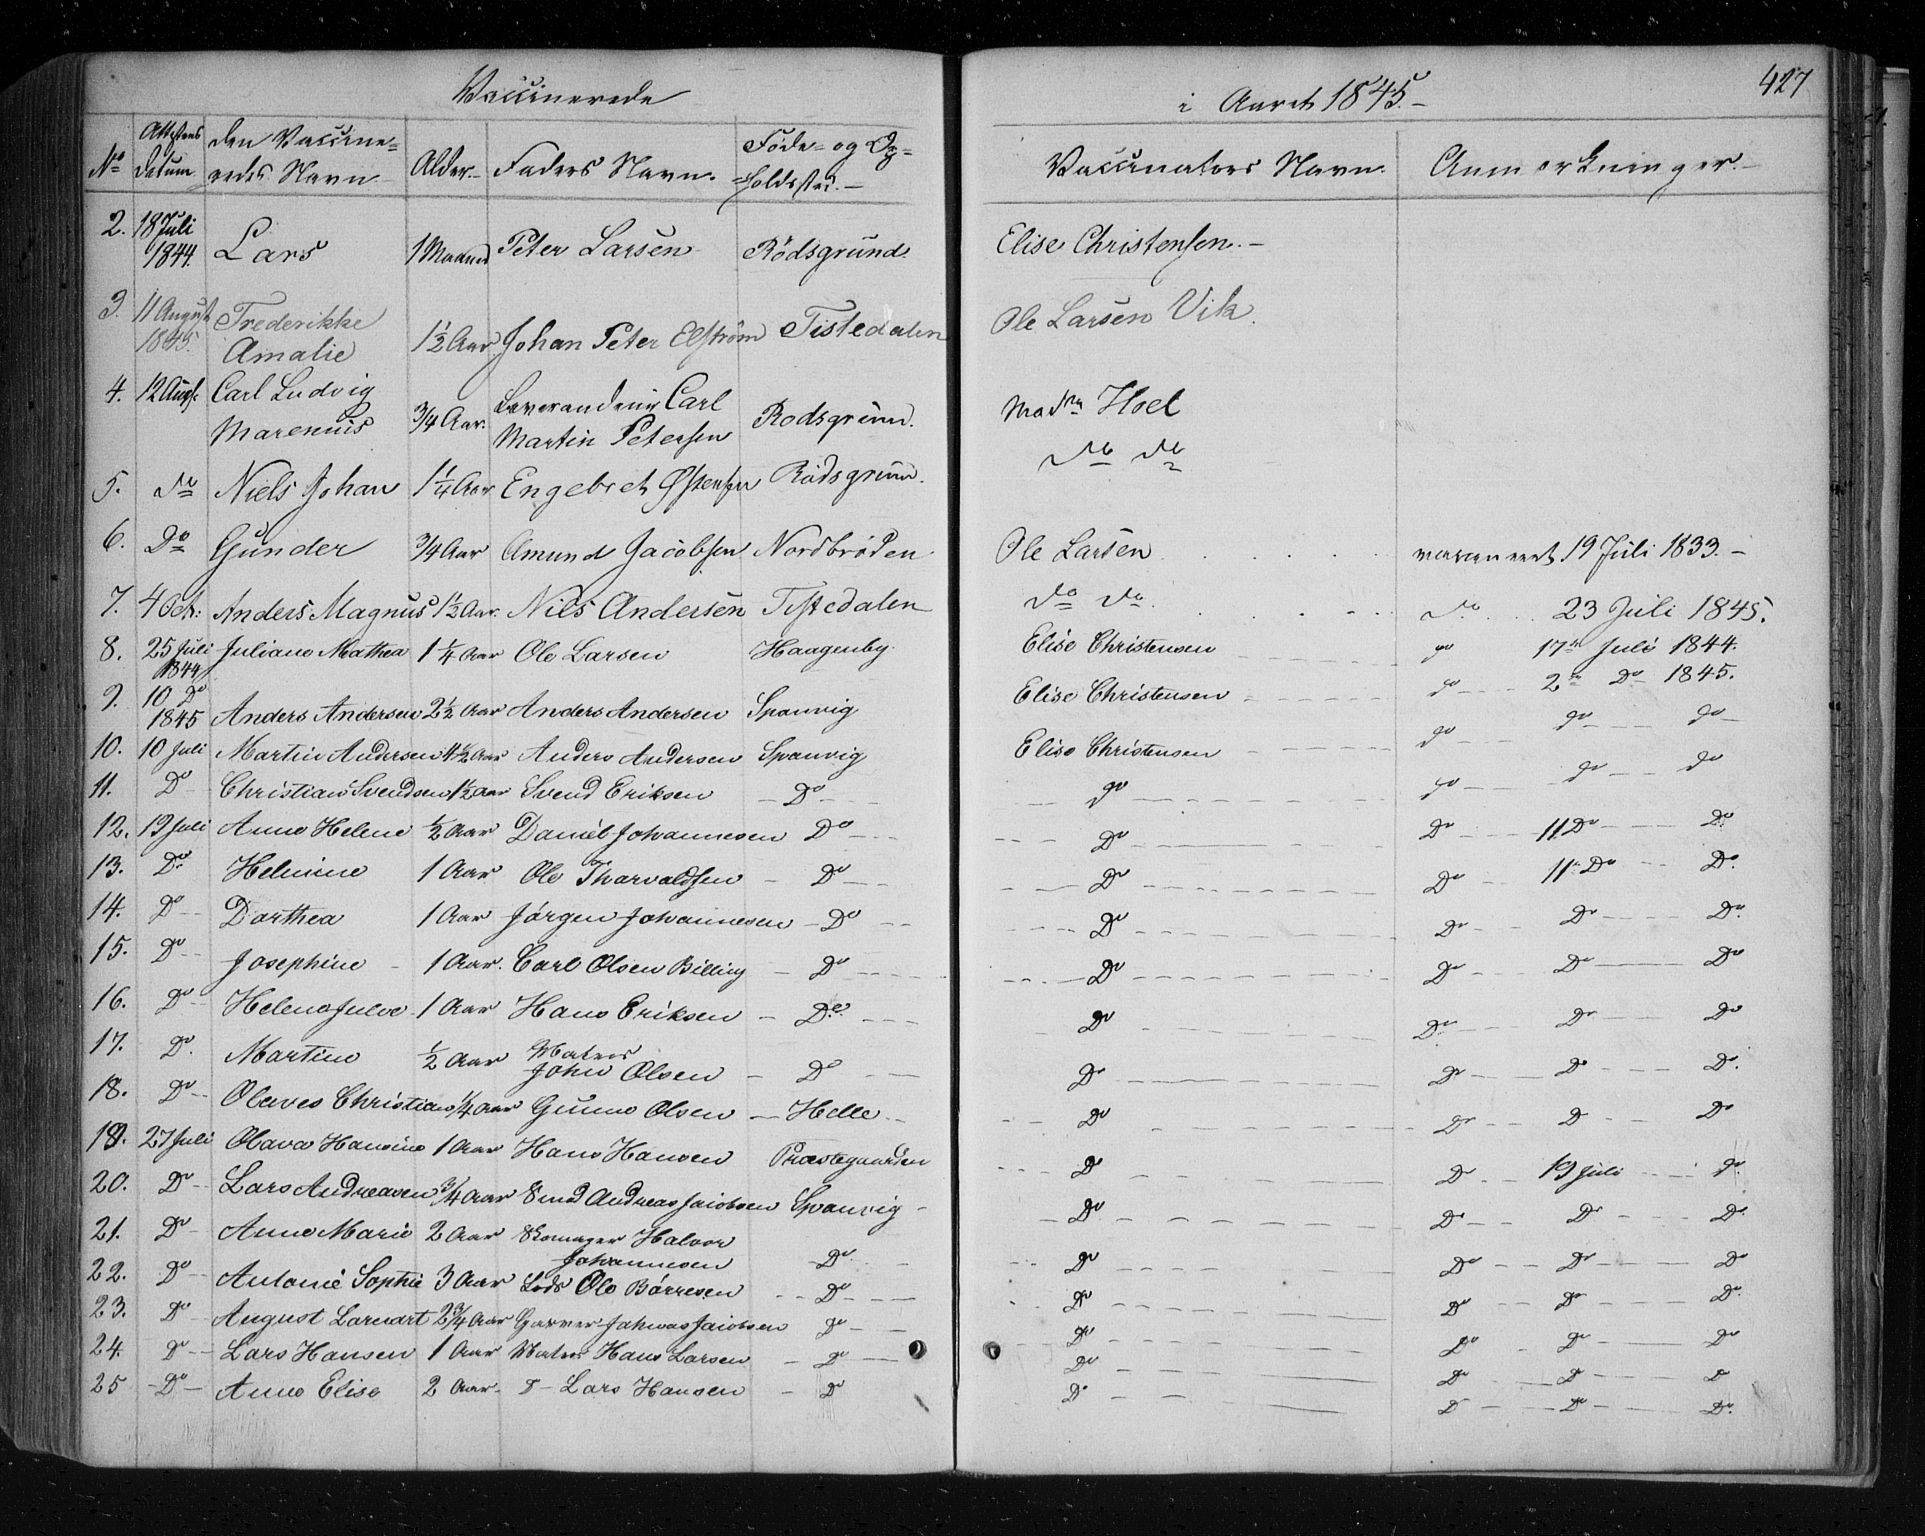 Vaccinerede i Aaret 1845.- 427
No Attestens Datum den Vaccine=redes Navn Alder.- Faders Navn. Føde- og Op=holdssted.- Vaccinators Navn. Anmærkninger.-
2. 18 Juli 1844. Lars 1 Maaned Peter Larsen Rødsgrund. Elise Christensen.-
3. 11 August 1845. Frederikke Amalie 1½ Aar Johan Peter Elstrøm Tistedalen Ole Larsen Vik.
4. 12 Augs. Carl Ludvig Marenius ¾ Aar. Carl Martin Petersen Rodsgrund. Madm Hoel
5. do Niels Johan 1¼ Aar Engebret Østensen Rødsgrund. do do
6. Do Gunder ¾ Aar Amund Jacobsen Nordbrøden Ole Larsen vaccineert 19 Juli 1833.-
7. 4 Oct: Anders Magnus 1½ Aar. Nils Andersen Tistedalen do do. do 23 Juli 1845.
8. 25 Juli 1844 Juliane Mathea 1¼ Aar Ole Larsen Haagenby Elise Christensen do 17de Juli 1844.
9. 10 Do 1845 Anders Andersen 2½ Aar Anders Andersen Sponvig Elise Christensen do 2den Do 1845.
10. 10 Juli Martin Andersen 4½ Aar Anders Andersen Sponvig Elise Christensen do do do
11. Do Christian Svendsen 1½ Aar Svend Eriksen Do do do do do
12. 19 Juli Anne Helene ½ Aar Daniel Johannesen Do Do Do 11 Do Do
13. Do Helmine 1 Aar Ole Thorvaldsen Do Do Do 11 Do Do
14. Do Dorthea 1 Aar Jørgen Johannesen Do Do Do Do Do
15. Do Josephine 1 Aar. Carl Olsen Billing Do Do Do Do Do
16. Do Helene Julie 1 Aar Hans Eriksen Do Do Do Do Do
17. Do. Martine ½ Aar Matros John Olsen Do Do Do Do Do.
18. Do Olaves Christian ¼ Aar Gunne Olsen Helle Do Do D Do
19. 27 Juli Olava Hansine 1 Aar Hans Hansen Præstegaarden Do Do 19 Juli do
20. Do Lars Andreasen ¾ Aar Smed Andreas Jacobsen Sponvig Do Do Do Do
21. Do Anne Marie 2 Aar Halvor Johannesen Do Do Do Do Do
22. Do Antonie Sophie 3 Aar Lods Ole Børresen Do Do Do Do Do
23. Do August Lornart 2¾ Aar Garver Johnas Jacobsen Do Do Do D Do
24. Do Lars Hansen 1 Aar Matros Hans Larsen Do Do Do D D
25 Do Anne Elise 2 Aar D- Lars Hansen Do Do D Do Do